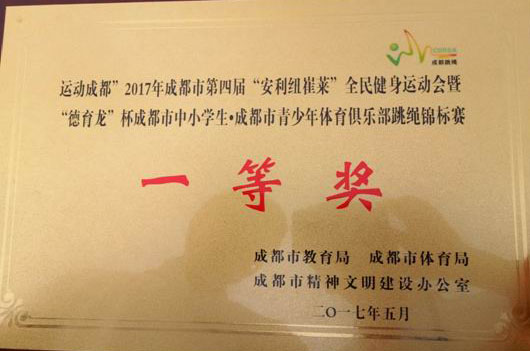 成都跳绳
运动成都”2017年成都市第四届“安利纽崔莱”全民健身运动会暨
“德育龙”杯成都市中小学生•成都市青少年体育俱乐部跳绳锦标赛
一等奖
成都市教育局 成都市体育局
成都市精神文明建设办公室
二〇一七年五月